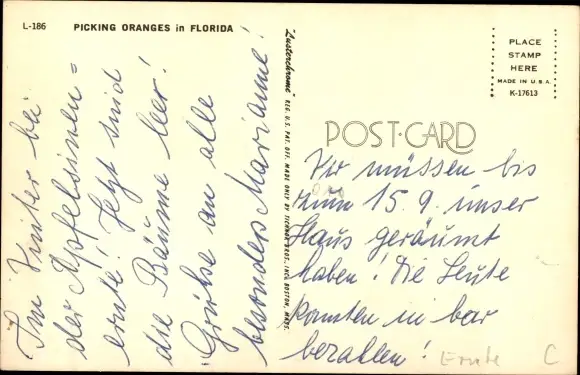 L-186 PICKING ORANGES in FLORIDA
Im Winter bei
der Apfelsinen=
ernte! Jetzt sind
die Bäume leer!
Grüße an alle
besonders Marianne!
"Lusterchrome" REG. U.S. PAT. OFF. MADE ONLY BY TICHNOR BROS., INC., BOSTON, MASS.
PLACE
STAMP
HERE
MADE IN U.S.A.
K-17613
POST-CARD
Wir müssen bis
zum 15.9. unser
Haus geräumt
haben! Die Leute
konnten in bar
bezahlen!
Ernte
C